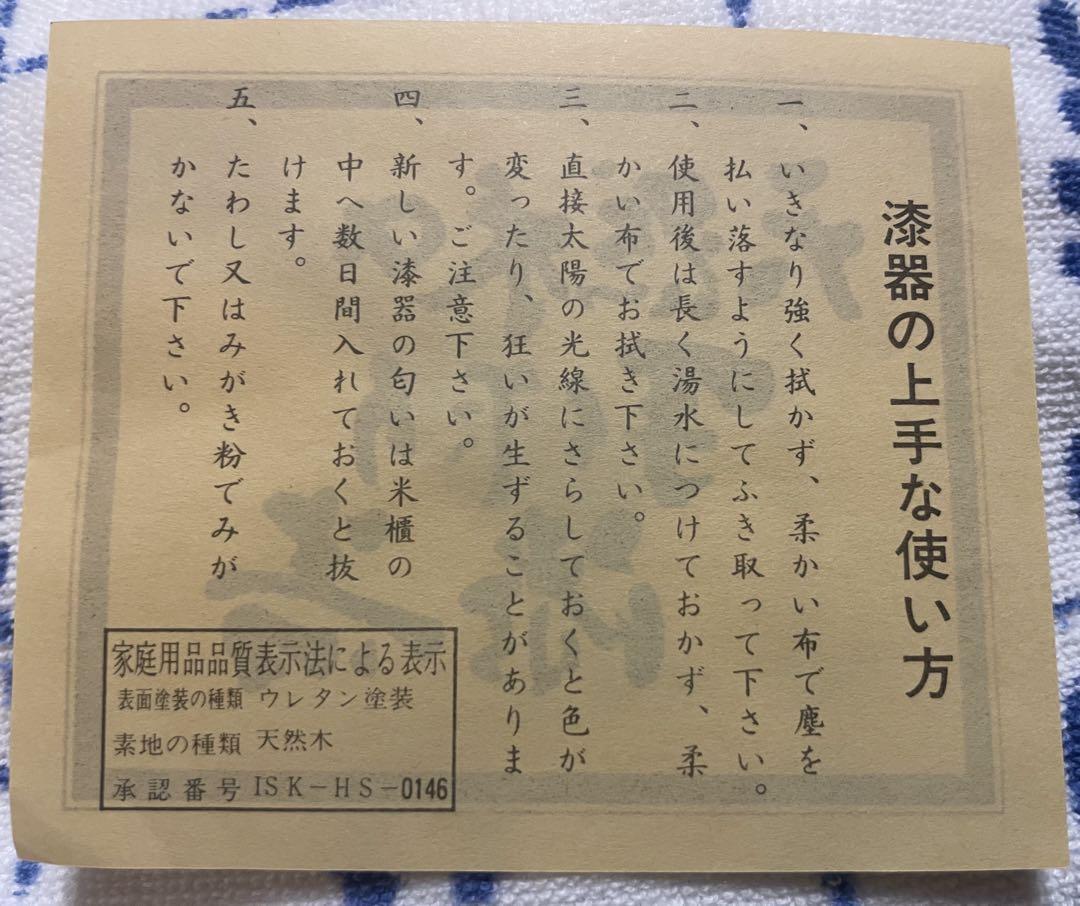 漆器の上手な使い方
一、いきなり強く拭かず、柔かい布で塵を
払い落すようにしてふき取って下さい。
二、使用後は長く湯水につけておかず、柔
かい布でお拭き下さい。
三、直接太陽の光線にさらしておくと色が
変ったり、狂いが生ずることがありま
す。ご注意下さい。
四、新しい漆器の匂いは米櫃の
中へ数日間入れておくと抜
けます。
五、たわし又はみがき粉でみが
かないで下さい。
家庭用品品質表示法による表示
表面塗装の種類 ウレタン塗装
素地の種類 天然木
承認番号 ISK-HS-0146